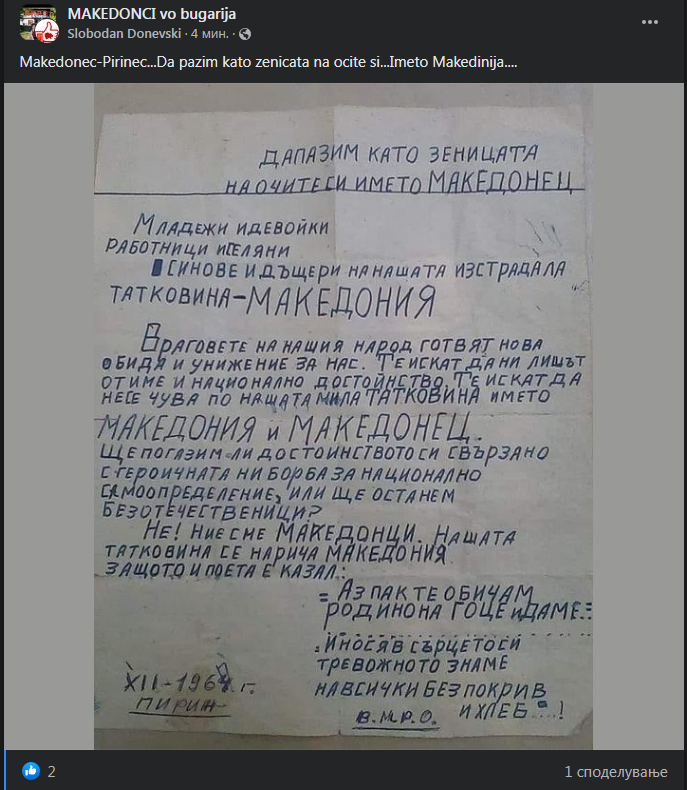 MAKEDONCI vo bugarija
Slobodan Donevski · 4 мин. ·
Makedonec-Pirinec...Da pazim kato zenicata na ocite si...Imeto Makedinija....
ДАПАЗИМ КАТО ЗЕНИЦАТА
НА ОЧИТЕСИ ИМЕТО МАКЕДОНЕЦ
МЛАДЕЖИ ИДЕВОЙКИ
РАБОТНИЦИ ИСЕЛЯНИ
СИНОВЕ И ДЪЩЕРИ НА НАШАТА ИЗСТРАДАЛА
ТАТКОВИНА-МАКЕДОНИЯ
ВРАГОВЕТЕ НА НАШИЯ НАРОД ГОТВЯТ НОВА
ОБИДА И УНИЖЕНИЕ ЗА НАС. ТЕ ИСКАТ ДА НИ ЛИШЪТ
ОТ ИМЕ И НАЦИОНАЛНО ДОСТОЙНСТВО. ТЕ ИСКАТ ДА
НЕСЕ ЧУВА ПО НАШАТА МИЛА ТАТКОВИНА ИМЕТО
МАКЕДОНИЯ И МАКЕДОНЕЦ.
ЩЕ ПОГАЗИМ-ЛИ ДОСТОИНСТВОТО СИ СВЪРЗАНО
С ГЕРОИЧНАТА НИ БОРБА ЗА НАЦИОНАЛНО
САМООПРЕДЕЛЕНИЕ, ИЛИ ЩЕ ОСТАНЕМ
БЕЗОТЕЧЕСТВЕНИЦИ?
НЕ! НИЕ СНЕ МАКЕДОНЦИ. НАШАТА
ТАТКОВИНА СЕ НАРИЧА МАКЕДОНИЯ
ЗАЩОТО И ПОЕТА Е КАЗАЛ:
= АЗ ПАК ТЕ ОБИЧАМ
РОДИНО НА ГОЦЕ И ДАМЕ.=
ИНОСЯ В СЪРЦЕТО СИ
ТРЕВОЖНОТО ЗНАМЕ
НА ВСИЧКИ БЕЗ ПОКРИВ
И ХЛЕБ....!
XII-196 г.
ПИРИН-
В.М.Р.О.
2
1 споделување